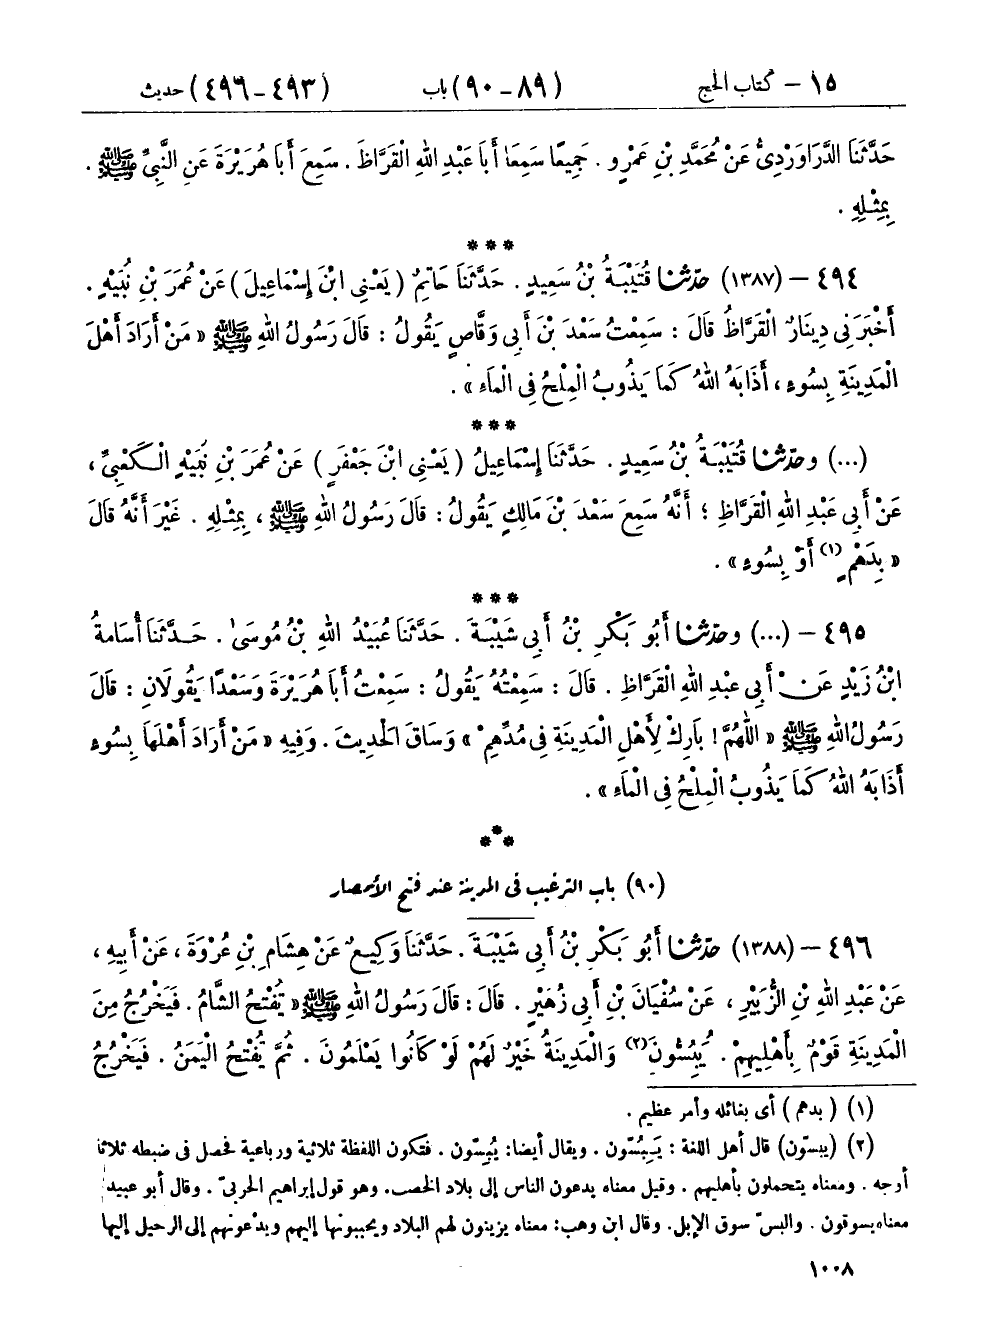 ١٥ – كتاب الحج (٨٩–٩٠) باب (٤٩٣–٤٩٦) حديث
حَدَّثَنَا الدَّرَاوَرْدِىُّ عَنْ مُحَمَّدِ بْنِ عَمْرٍو . جَمِيعًا سَمِعَا أَبَا عَبْدِ اللهِ الْقَرَّاظَ . سَمِعَ أَبَا هُرَيْرَةَ عَنِ النَّبِىِّ ﷺ .
بِمِثْلِهِ .
***
٤٩٤ – (١٣٨٧) حدّثنا قُتَيْبَةُ بْنُ سَعِيدٍ . حَدَّثَنَا حَاتِمٌ ( يَعْنِى ابْنَ إِسْمَاعِيلَ ) عَنْ عُمَرَ بْنِ نُبَيْهٍ .
أَخْبَرَنِى دِينَارٌ الْقَرَّاظُ قَالَ : سَمِعْتُ سَعْدَ بْنَ أَبِى وَقَّاصٍ يَقُولُ : قَالَ رَسُولُ اللهِ ﷺ « مَنْ أَرَادَ أَهْلَ
الْمَدِينَةِ بِسُوءٍ ، أَذَابَهُ اللهُ كَمَا يَذُوبُ الْمِلْحُ فِى الْمَاءِ » .
***
(...) وحدّثنا قُتَيْبَةُ بْنُ سَعِيدٍ . حَدَّثَنَا إِسْمَاعِيلُ ( يَعْنِى ابْنَ جَعْفَرٍ ) عَنْ عُمَرَ بْنِ نُبَيْهٍ الْكَعْبِىِّ ،
عَنْ أَبِى عَبْدِ اللهِ الْقَرَّاظِ ؛ أَنَّهُ سَمِعَ سَعْدَ بْنَ مَالِكٍ يَقُولُ : قَالَ رَسُولُ اللهِ ﷺ ، بِمِثْلِهِ . غَيْرَ أَنَّهُ قَالَ
« بِدَهْمٍ (١) أَوْ بِسُوءٍ » .
***
٤٩٥ – (...) وحدّثنا أَبُو بَكْرِ بْنُ أَبِى شَيْبَةَ . حَدَّثَنَا عُبَيْدُ اللهِ بْنُ مُوسَىٰ . حَدَّثَنَا أُسَامَةُ
ابْنُ زَيْدٍ عَنْ أَبِى عَبْدِ اللهِ الْقَرَّاظِ . قَالَ : سَمِعْتُهُ يَقُولُ : سَمِعْتُ أَبَا هُرَيْرَةَ وَسَعْدًا يَقُولَانِ : قَالَ
رَسُولُ اللهِ ﷺ « اللّٰهُمَّ ! بَارِكْ لِأَهْلِ الْمَدِينَةِ فِى مُدِّهِمْ » وَسَاقَ الْحَدِيثَ . وَفِيهِ « مَنْ أَرَادَ أَهْلَهَا بِسُوءٍ
أَذَابَهُ اللهُ كَمَا يَذُوبُ الْمِلْحُ فِى الْمَاءِ » .
***
(٩٠) باب الترغيب فى المدينة عند فتح الأمصار
٤٩٦ – (١٣٨٨) حدّثنا أَبُو بَكْرِ بْنُ أَبِى شَيْبَةَ . حَدَّثَنَا وَكِيعٌ عَنْ هِشَامِ بْنِ عُرْوَةَ ، عَنْ أَبِيهِ ،
عَنْ عَبْدِ اللهِ بْنِ الزُّبَيْرِ ، عَنْ سُفْيَانَ بْنِ أَبِى زُهَيْرٍ . قَالَ : قَالَ رَسُولُ اللهِ ﷺ « تُفْتَحُ الشَّامُ . فَيَخْرُجُ مِنَ
الْمَدِينَةِ قَوْمٌ بِأَهْلِيهِمْ . يَبُسُّونَ (٢) وَالْمَدِينَةُ خَيْرٌ لَهُمْ لَوْ كَانُوا يَعْلَمُونَ . ثُمَّ تُفْتَحُ الْيَمَنُ . فَيَخْرُجُ
(١) ( بدهم ) أى بغائله وأمر عظيم .
(٢) (يبسّون) قال أهل اللغة : يَبِسُّون . ويقال أيضا: يُبِسّون . فتكون اللفظة ثلاثية ورباعية فحصل فى ضبطه ثلاثا
أوجه . ومعناه يتحملون بأهليهم . وقيل معناه يدعون الناس إلى بلاد الخصب. وهو قول إبراهيم الحربىّ . وقال أبو عبيد:
معناه يسوقون . والبسّ سوق الإبل. وقال ابن وهب: معناه يزينون لهم البلاد ويحببونها إليهم ويدعونهم إلى الرحيل إليها
١٠٠٨